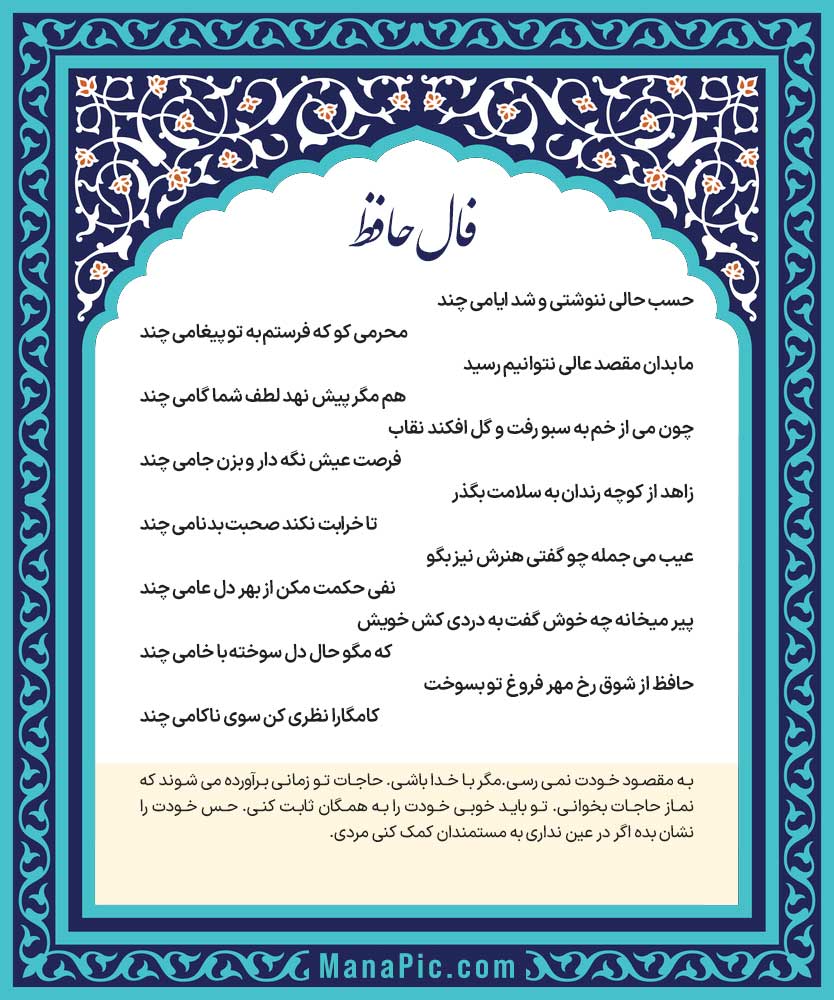 فال حافظ
حسب حالی ننوشتی و شد ایامی چند
محرمی کو که فرستم به تو پیغامی چند
ما بدان مقصد عالی نتوانیم رسید
هم مگر پیش نهد لطف شما گامی چند
چون می از خم به سبو رفت و گل افکند نقاب
فرصت عیش نگه دار و بزن جامی چند
زاهد از کوچه رندان به سلامت بگذر
تا خرابت نکند صحبت بدنامی چند
عیب می جمله چو گفتی هنرش نیز بگو
نفی حکمت مکن از بهر دل عامی چند
پیر میخانه چه خوش گفت به دردی کش خویش
که مگو حال دل سوخته با خامی چند
حافظ از شوق رخ مهر فروغ تو بسوخت
کامگارا نظری کن سوی ناکامی چند
به مقصود خودت نمی رسی.مگر با خدا باشی. حاجات تو زمانی برآورده می شوند که
نماز حاجات بخوانی. تو باید خوبی خودت را به همگان ثابت کنی. حس خودت را
نشان بده اگر در عین نداری به مستمندان کمک کنی مردی.
ManaPic.com